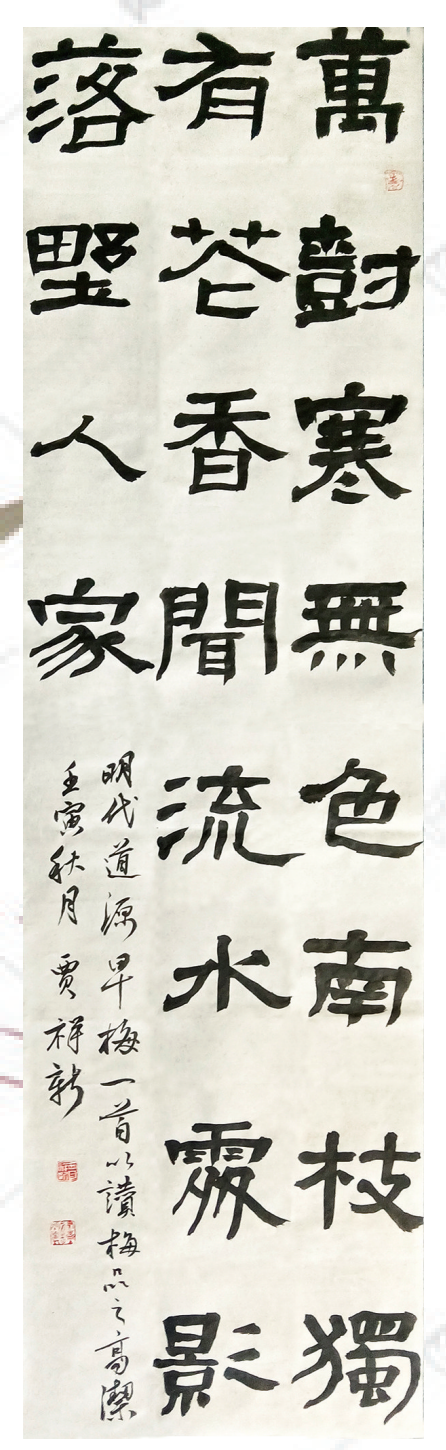 萬樹寒無色南枝獨
有花香聞流水處影
落野人家
明代道源早梅一首以讚梅品之高潔
壬寅秋月賈祥新